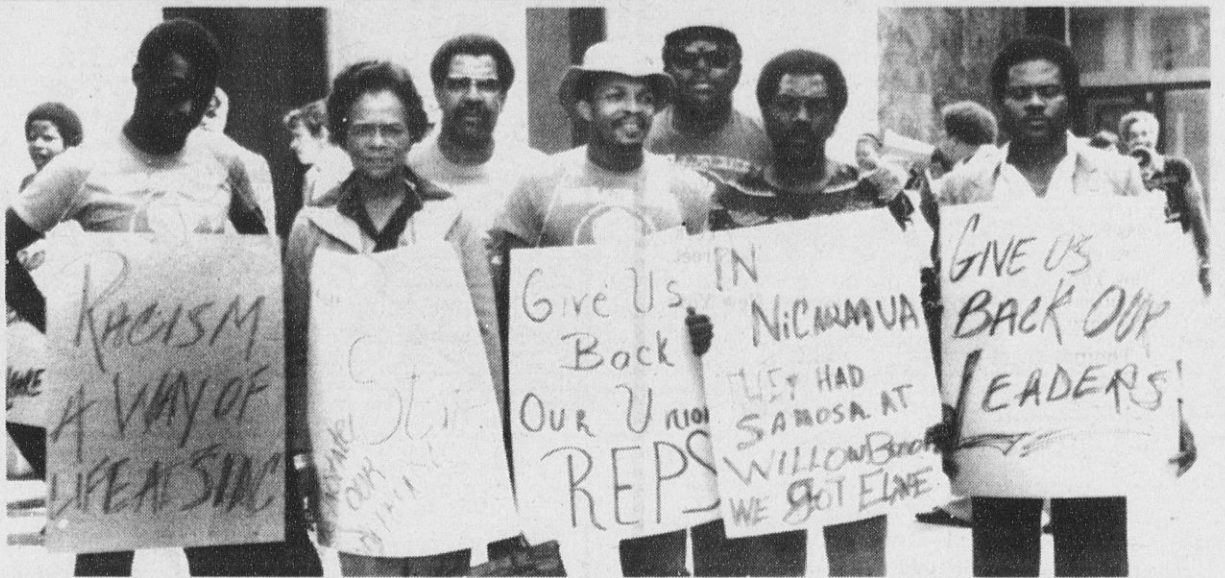 RACISM
A WAY OF
LIFE AT SIDC
OUR
Give Us
Back
OUR UNION
REPS
IN
NiCARAGUA
THEY HAD
SAMOSA AT
WILLOWBROOK
WE GOT
GIVE US
BACK OUR
LEADERS